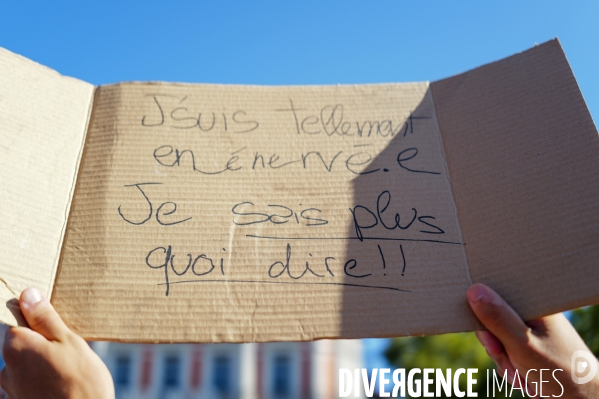 J'suis tellement
en énervé.e
Je sais plus
quoi dire!!
DIVERGENCE IMAGES.COM